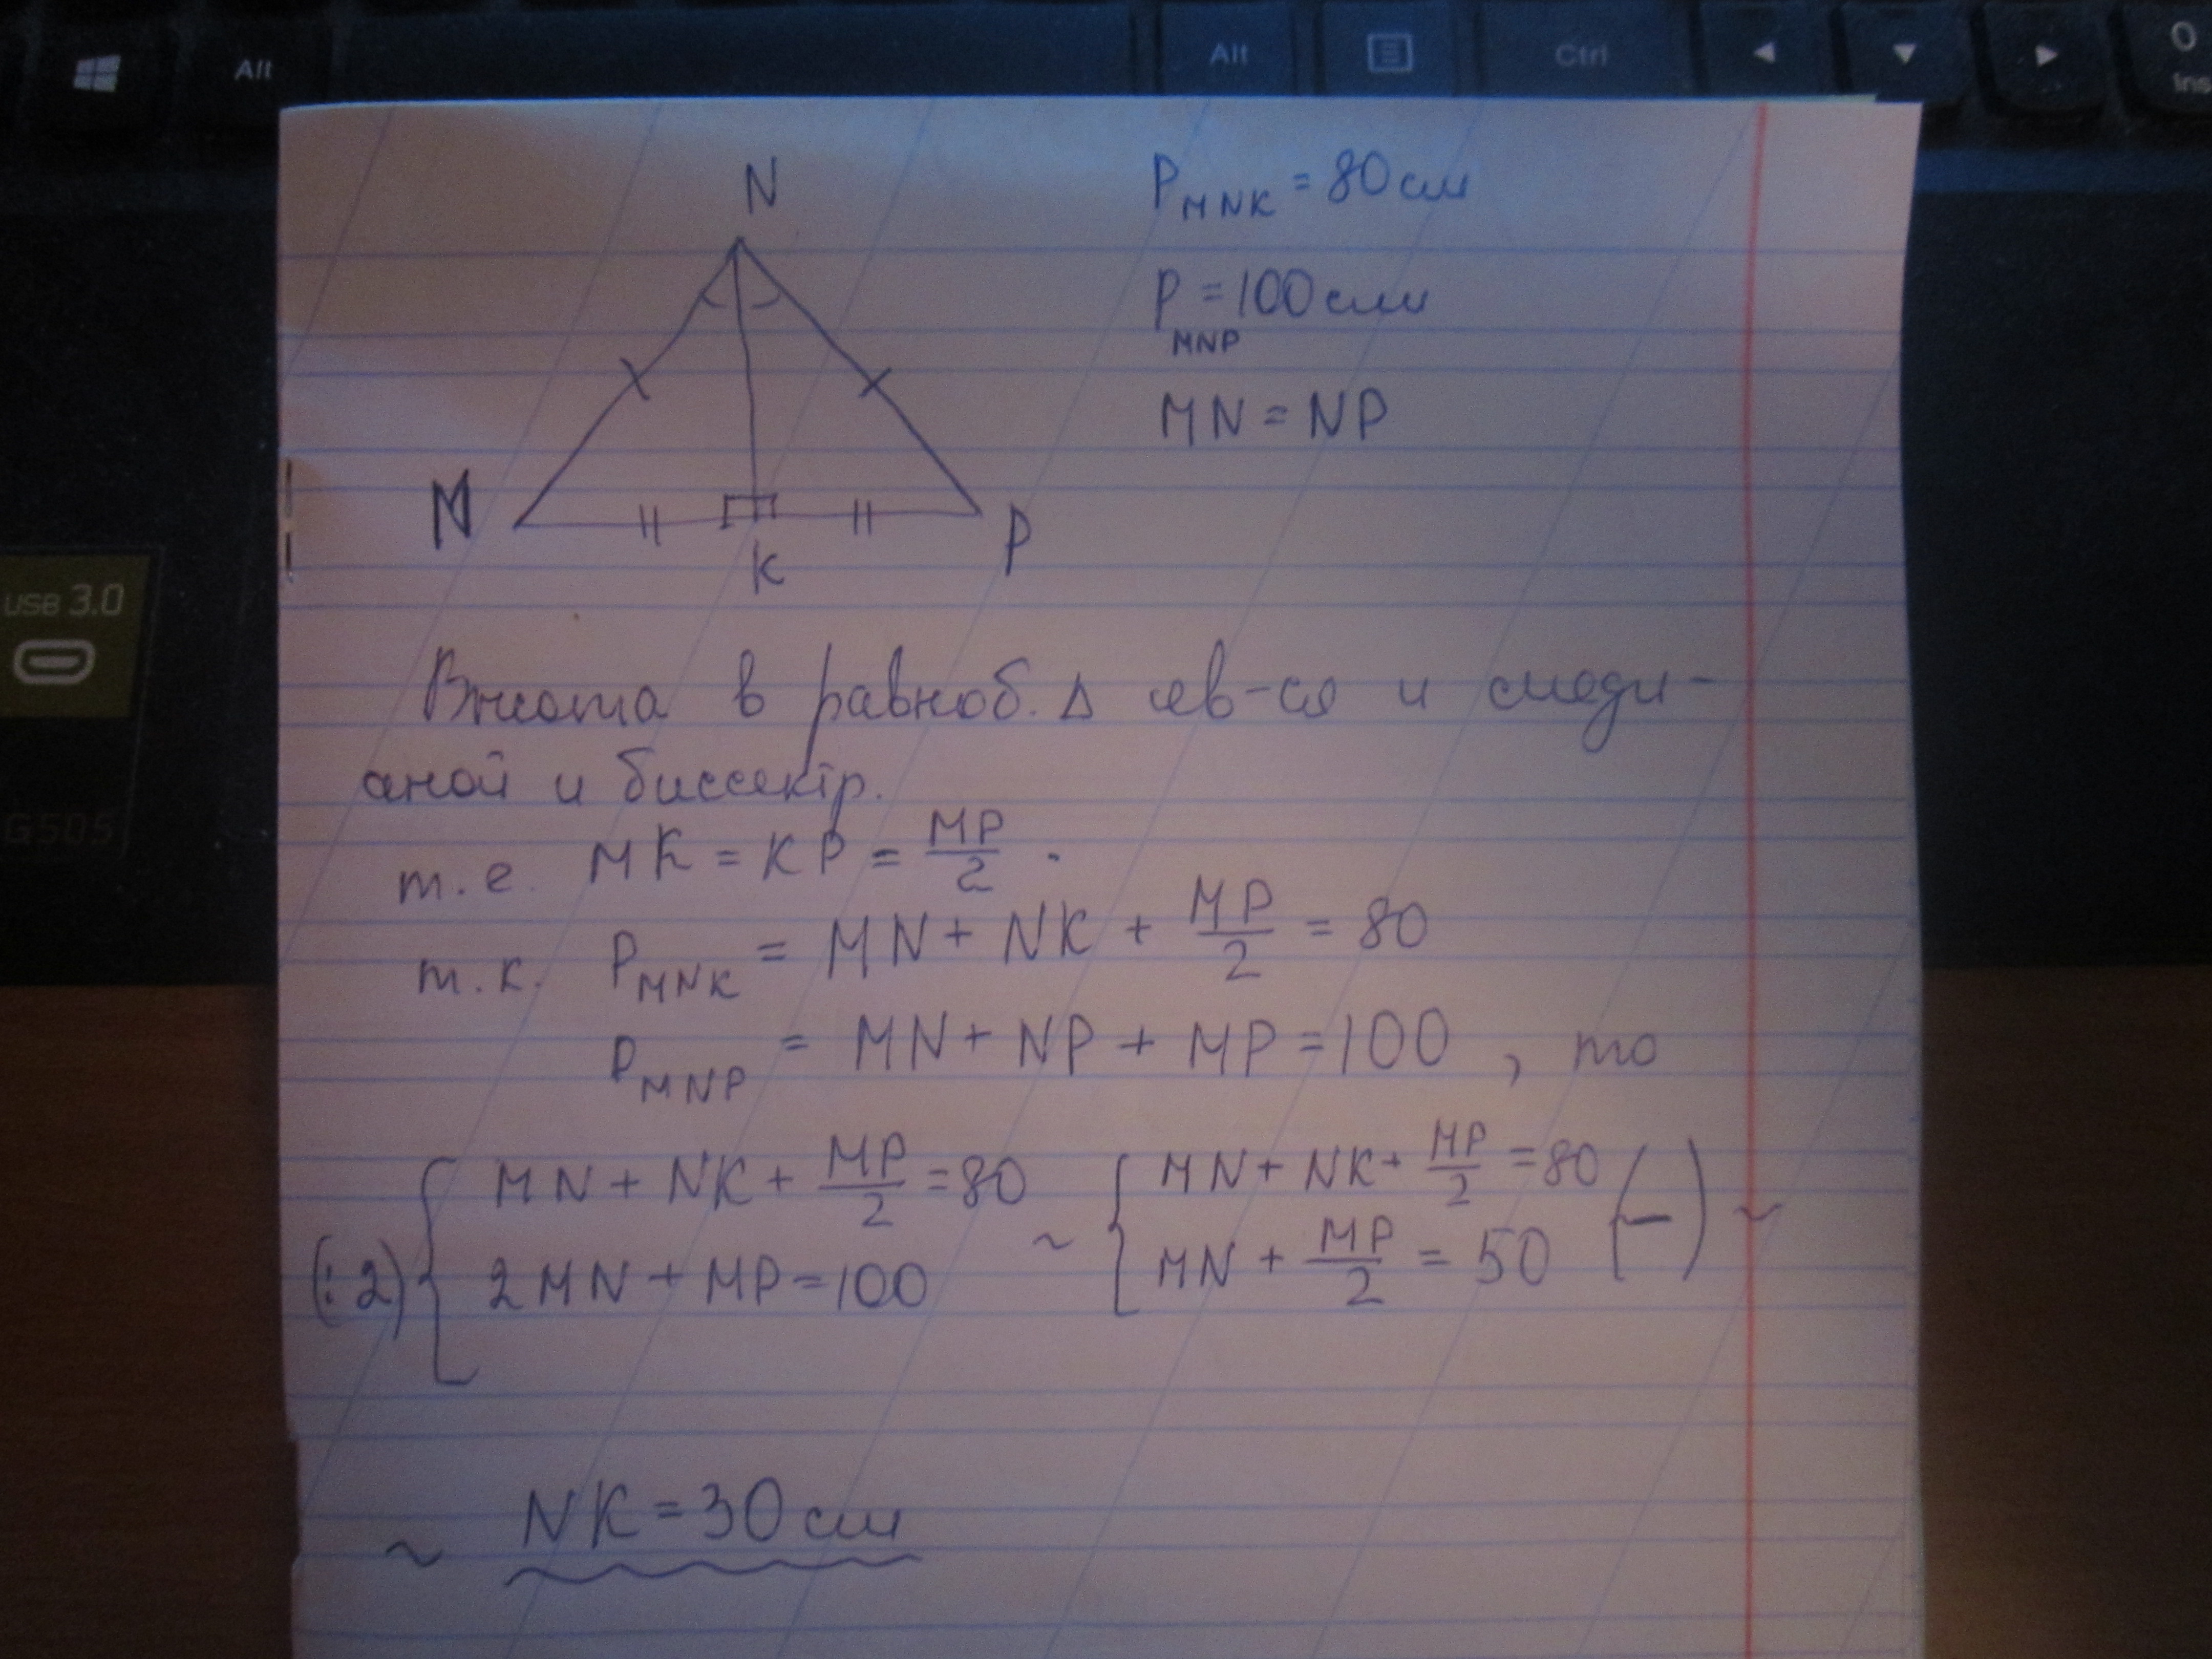 Alt
Alt
Ctrl
0
Ins
USB 3.0
G505
N
M
K
P
P_MNK = 80 см
P_MNP = 100 см
MN = NP
Высота в равноб. Δ яв-ся и меди-
аной и биссектр.
т.е. MK = KP = MP/2.
т.к. P_MNK = MN + NK + MP/2 = 80
P_MNP = MN + NP + MP = 100, то
{ MN + NK + MP/2 = 80 ~ { MN + NK + MP/2 = 80 (−) ~
(:2) 2MN + MP = 100 MN + MP/2 = 50
~ NK = 30 см